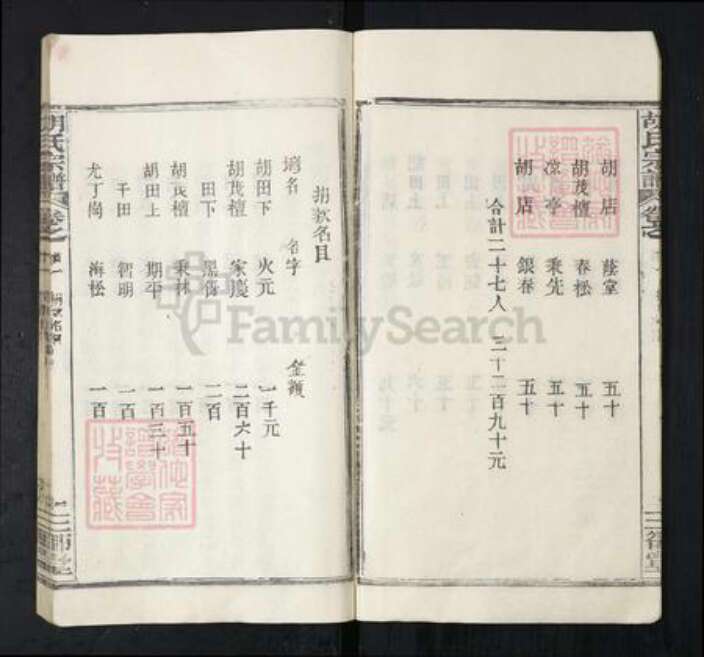 胡氏宗譜
胡店 蔭堂 五十
胡茂檀 春松 五十
凉亭 秉先 五十
胡店 銀春 五十
合計二十七人 二十二百九十元
捐款名目
塆名 名字 金額
胡田下 火元 一千元
胡茂檀 家慶 二百六十
田下 二百
胡茂檀 秉林 一百五十
胡田上 期平 一百三十
千田 智明 一百
尤丁崗 海松 一百
胡氏宗譜
FamilySearch